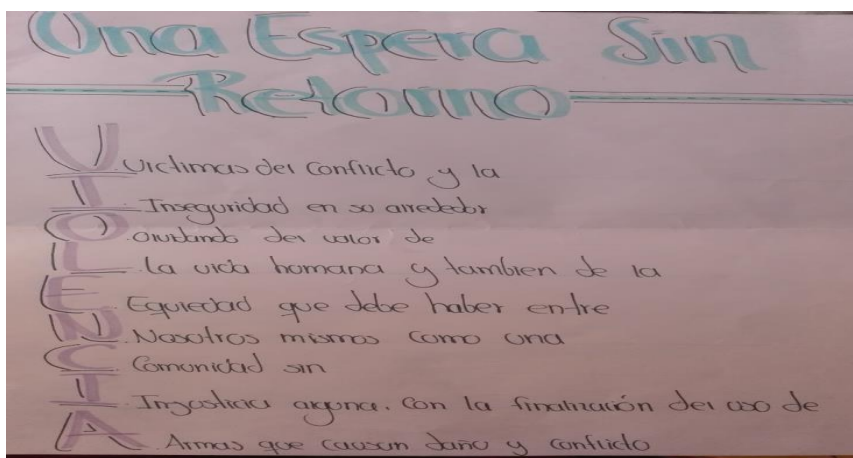 Una Espera Sin
Retorno
V Victimas del conflicto y la
I Inseguridad en su alrededor
O olvidando del valor de
L la vida humana y tambien de la
E Equiedad que debe haber entre
N Nosotros mismos como una
C Comunidad sin
I Injusticia alguna. Con la finalización del uso de
A Armas que causan daño y conflicto